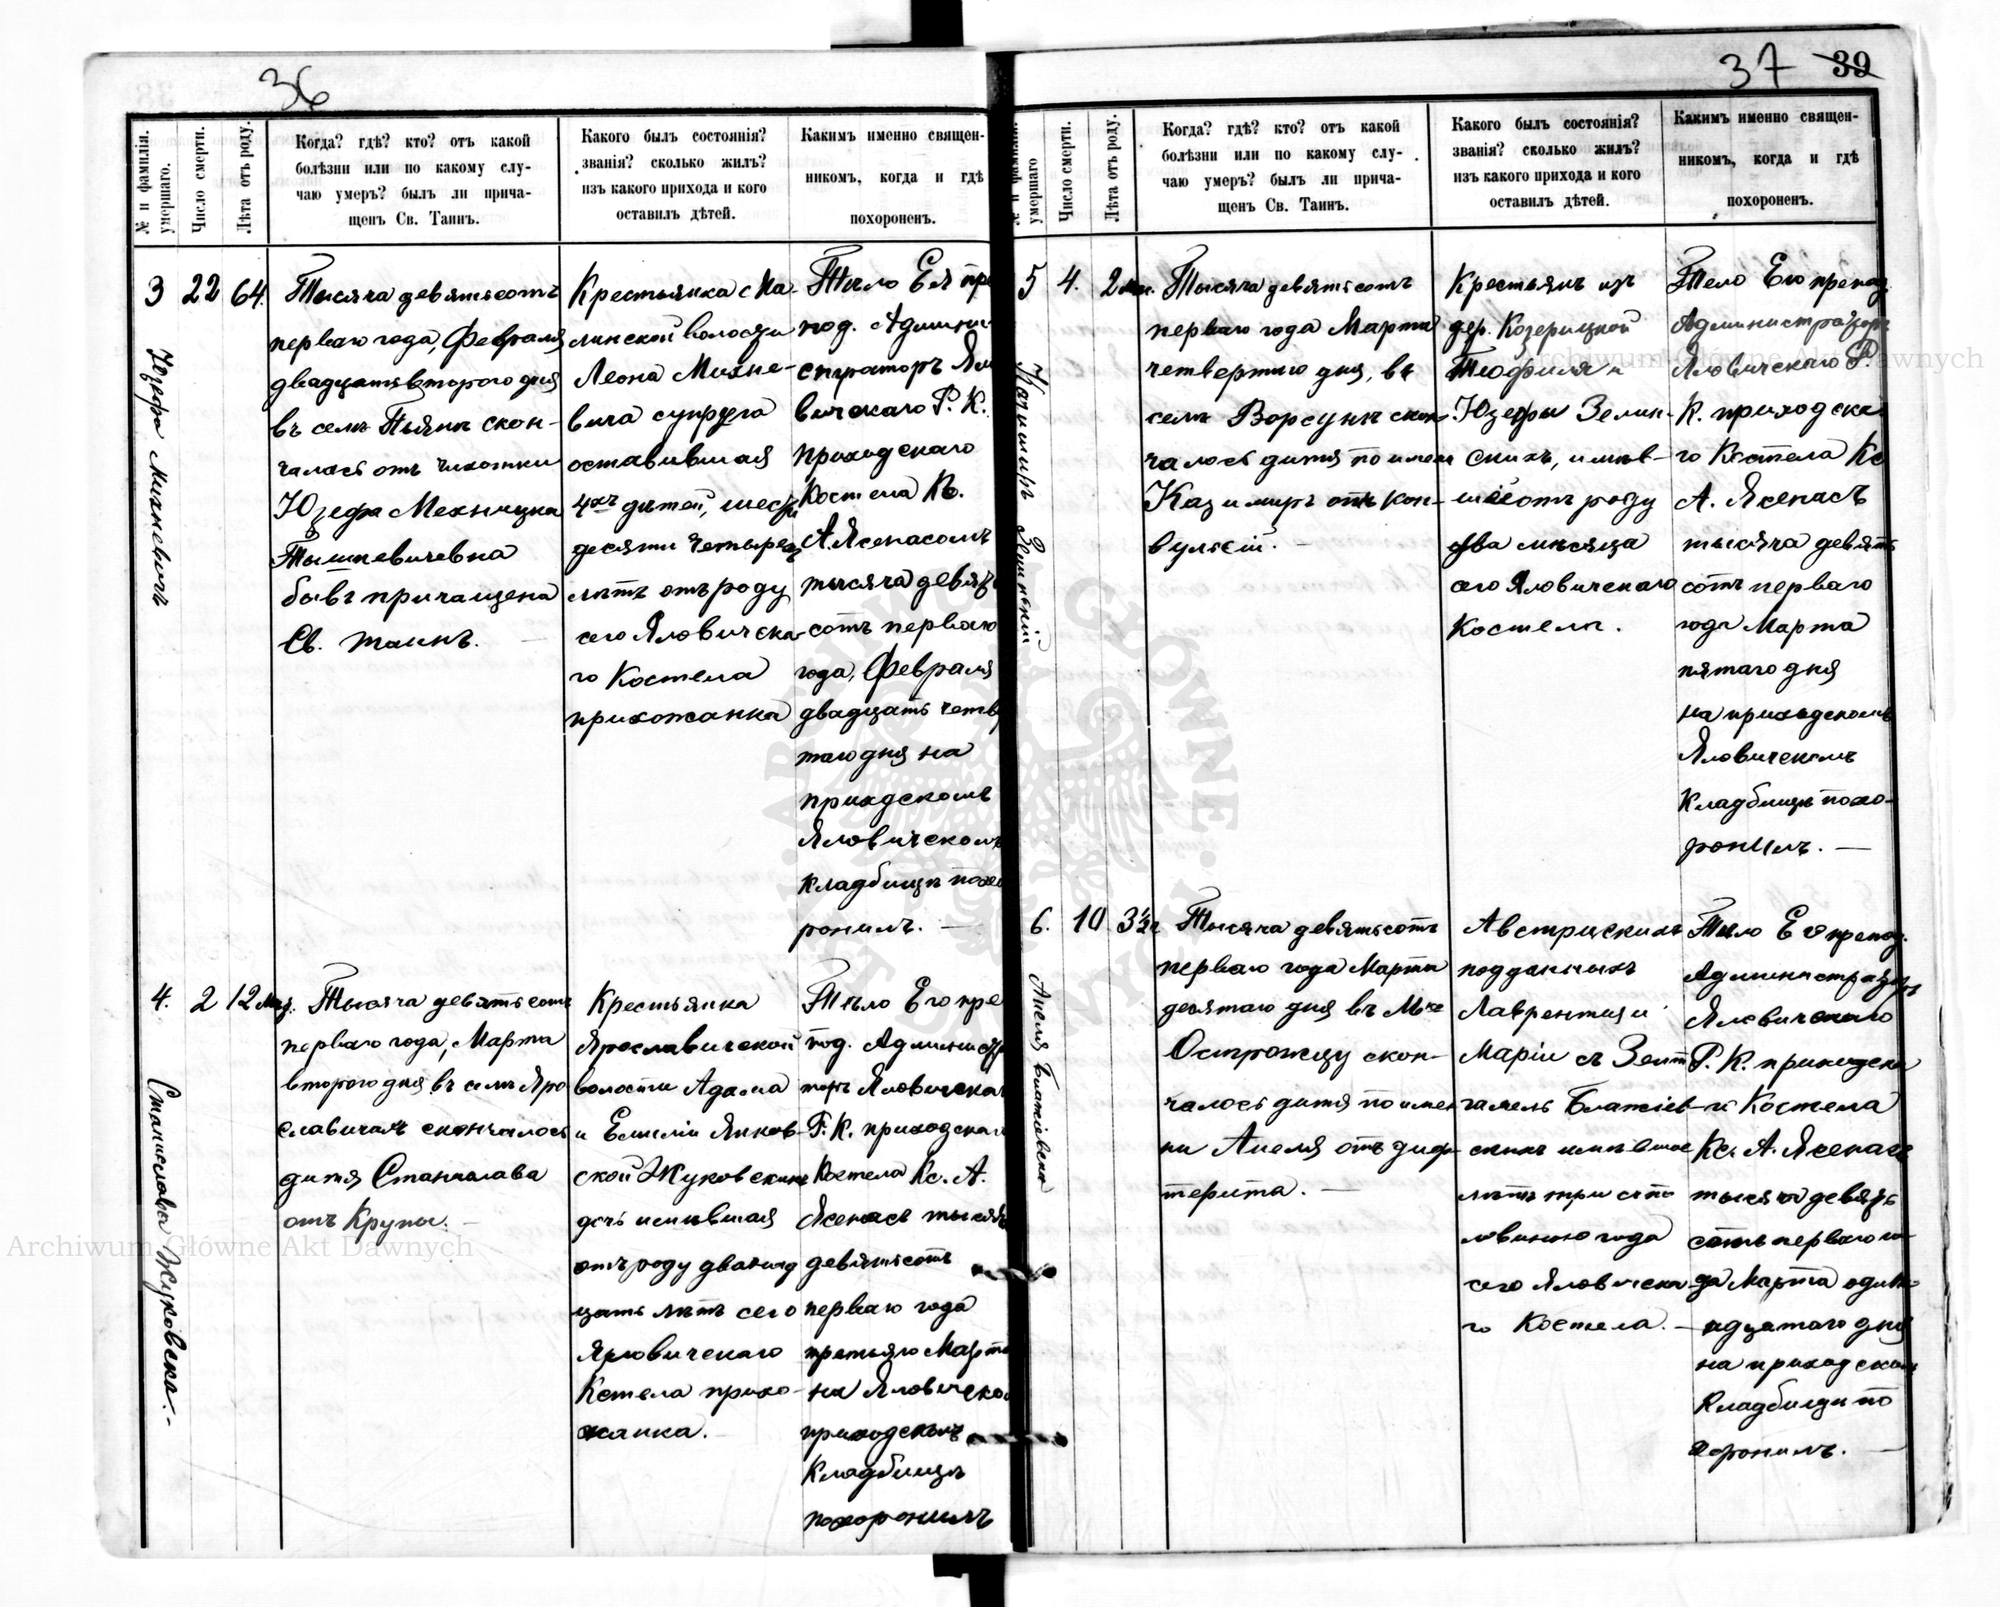 36
№ и фамилія. умершаго.
Число смерти.
Лѣта отъ роду.
Когда? гдѣ? кто? отъ какой
болѣзни или по какому слу-
чаю умеръ? былъ ли прича-
щенъ Св. Таинъ.
Какого былъ состоянія?
званія? сколько жилъ?
изъ какого прихода и кого
оставилъ дѣтей.
Какимъ именно священ-
никомъ, когда и гдѣ
похороненъ.
3
Юзефа Михневичъ
22
64.
Тысяча девятьсотъ
перваго года, Февраля
двадцать второго дня
въ селѣ Пьянѣ скон-
чалась отъ чахотки
Юзефа
Тышкевичевна
бывъ причащена
Св. таинъ.
Крестьянка
линской волости
Леона Михне-
вича супруга
оставившая
4хъ дѣтей, шесть
десяти четырехъ
лѣтъ отъ роду
сего Яловичска-
го Костела
прихожанка
Тѣло Ея пре
под. Админи
страторъ Яло
вичскаго Р. К.
приходскаго
Костела Кс.
А. Ясенасомъ
тысяча девять
сотъ перваго
года, Февраля
двадцать четвер
таго дня на
приходскомъ
Яловичскомъ
кладбищѣ похо
ронилъ.
4.
Станислава Жуковска.-
2
12 Мѣс.
Тысяча девятьсотъ
перваго года, Марта
второго дня въ селѣ Яро
славичахъ скончалось
дитя Станислава
отъ Крупы.
Крестьянка
Ярославичской
волости Адама
и Емиліи Янков-
ской Жуковскихъ
дочь имѣвшая
отъ роду двѣнад
цать лѣтъ сего
Яловичскаго
Кстела прихо-
жанка.
Тѣло Его пре
под. Администра
торъ Яловичскаго
Р. К. приходскаго
Костела Кс. А.
Ясенасъ тысяча
девятьсотъ
перваго года
третьяго Марта
на Яловичском
приходскомъ
Кладбищѣ
похоронилъ
37
39
№ и фамилія. умершаго
Число смерти.
Лѣта отъ роду.
Когда? гдѣ? кто? отъ какой
болѣзни или по какому слу-
чаю умеръ? былъ ли прича-
щенъ Св. Таинъ.
Какого былъ состоянія?
званія? сколько жилъ?
изъ какого прихода и кого
оставилъ дѣтей.
Какимъ именно священ-
никомъ, когда и гдѣ
похороненъ.
5
Казимиръ Зелинскій
4.
2 м.
Тысяча девятьсотъ
перваго года Марта
четвертаго дня, въ
селѣ Ворсунѣ скон-
чалось дитя по имени
Казимиръ отъ кон-
вульсій.
Крестьянъ изъ
дер. Козерицкой
Теофиля и
Юзефы Зелин-
скихъ, имѣв-
шее отъ роду
два мѣсяца
сего Яловичскаго
Костела.
Тело Его препод.
Администраторъ
Яловичскаго Р.
К. приходска
го Костела Кс
А. Ясенасъ
тысяча девять
сотъ перваго
года Марта
пятаго дня
на приходскомъ
Яловичскомъ
кладбищѣ похо-
ронилъ.
6.
Анеля Блажіевска
10
3½ г.
Тысяча девятьсотъ
перваго года Марта
десятаго дня въ М-кѣ
Острожцу скон-
чалось дитя по име
ни Анеля отъ диф-
терита.
Австрискихъ
подданныхъ
Лаврентія и
Маріи съ
Блажіев-
скихъ имѣвшое
лѣтъ три съ по
ловиною года
сего Яловичска
го Костела.
Тѣло Его препод.
Администраторъ
Яловичскаго
Р. К. приходска
го Костела
Кс. А. Ясенасъ
тысяча девять
сотъ перваго го-
да Марта один-
надцатаго дня
на приходском
Кладбищѣ по
хоронилъ.
Archiwum Główne Akt Dawnych
Archiwum Główne Akt Dawnych
ARCHIWUM GŁÓWNE AKT DAWNYCH